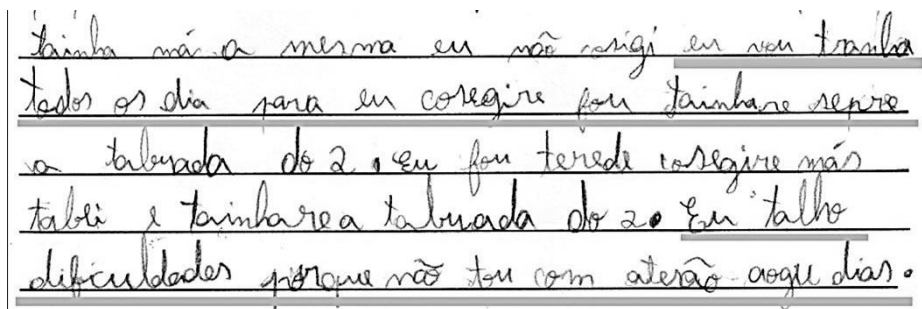 tainha más a mesma eu não cosigi eu vou tranha
todos os dia para eu coregire fou tainhare sepre
a tabuada do 2. eu fou terede cosegire más
tabèi e tainharea tabuada do 2. Eu talho
dificuldades porque não tou com atesão aogu dias.